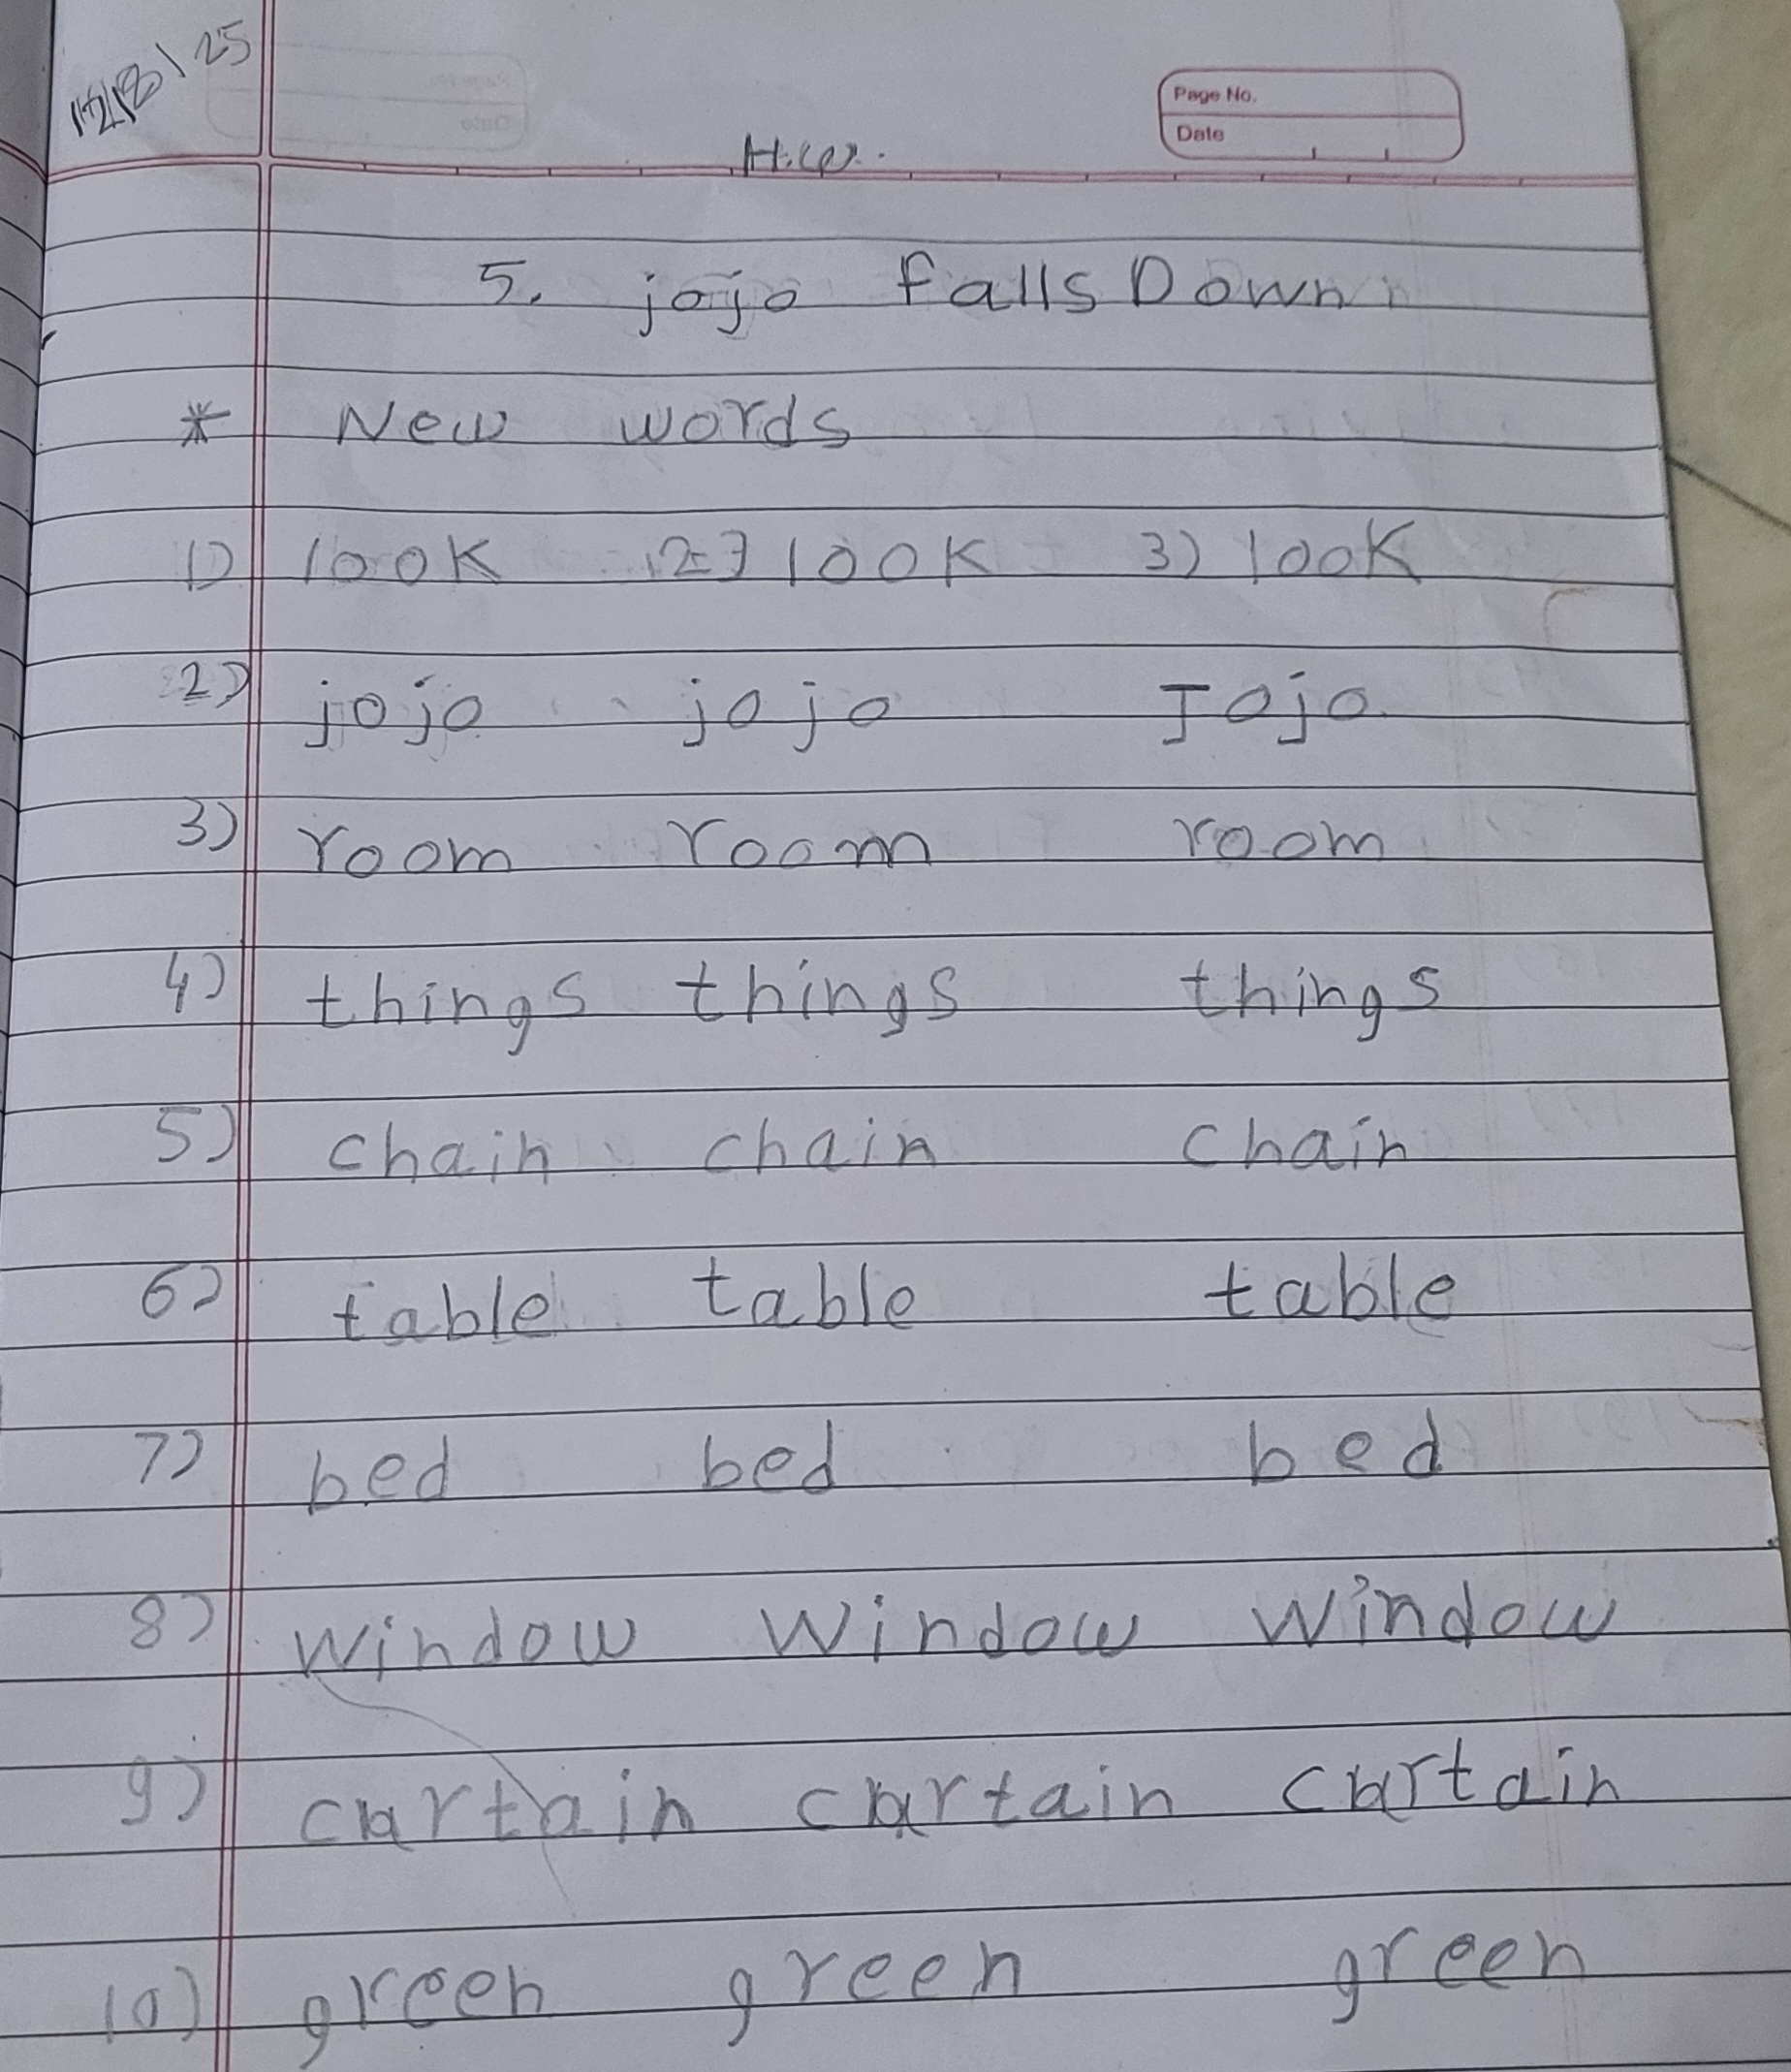 Page No.
Date
H.W.
5. jojo falls Down
* New words
1) look 2) look 3) look
2) jojo jojo Jojo
3) room room room
4) things things things
5) chain chain chain
6) table table table
7) bed bed bed
8) window window window
9) curtain curtain curtain
10) green green green